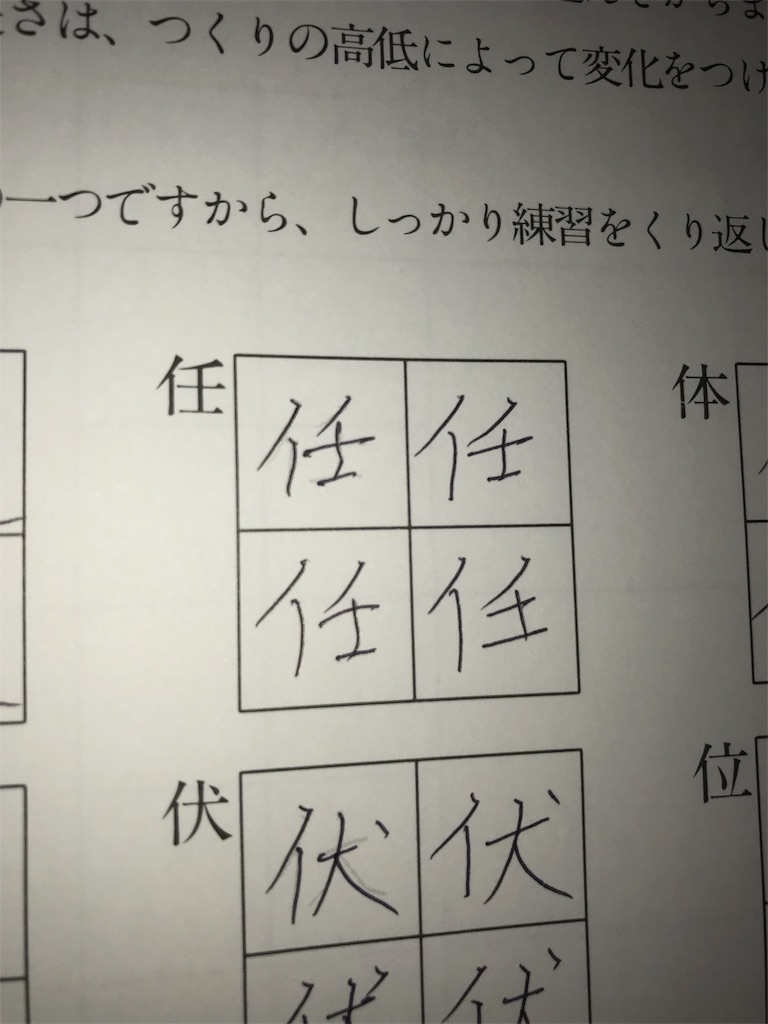 さは、つくりの高低によって変化をつけ
一つですから、しっかり練習をくり返し
任 任 任 体
任 任
伏 伏 伏 位
伏 伏